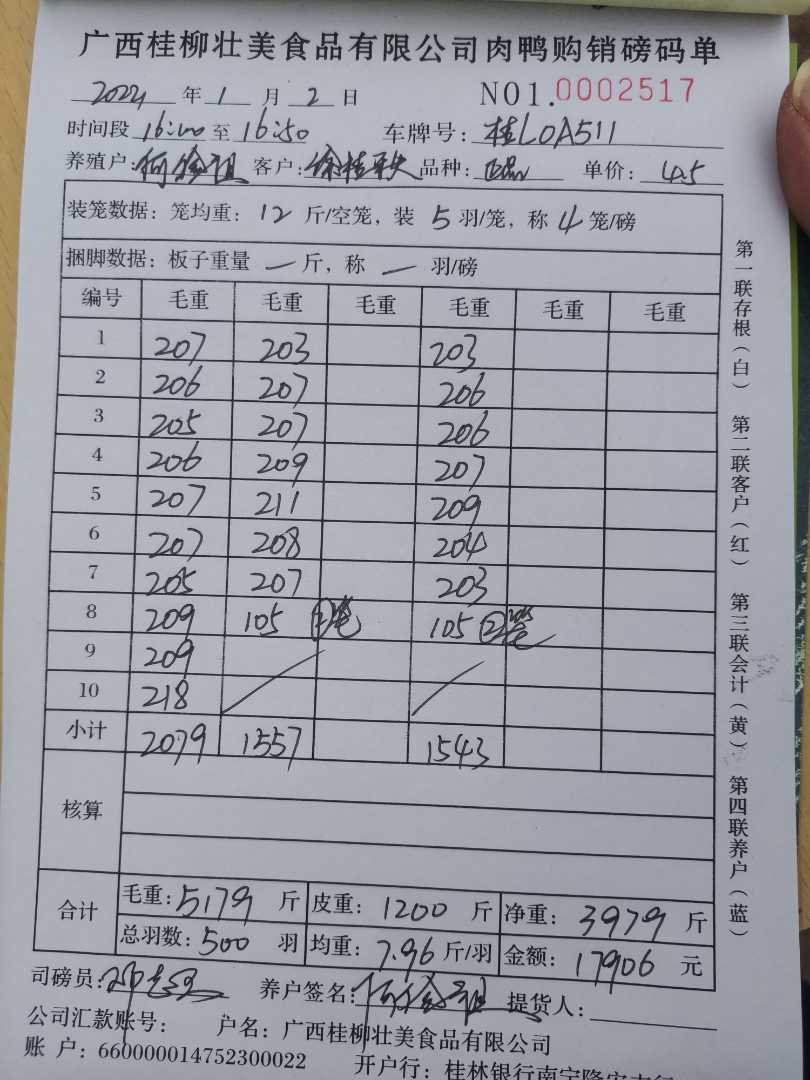 广西桂柳壮美食品有限公司肉鸭购销磅码单
2024 年 1 月 2 日 NO1.0002517
时间段 16:00 至 16:50 车牌号: 桂L0A511
养殖户: 客户: 徐桂 品种: 正品 单价: 4.5
装笼数据: 笼均重: 12 斤/空笼, 装 5 羽/笼, 称 4 笼/磅
捆脚数据: 板子重量 — 斤, 称 — 羽/磅
编号 毛重 毛重 毛重 毛重 毛重 毛重
1 207 203 203
2 206 207 206
3 205 207 206
4 206 209 207
5 207 211 209
6 207 208 204
7 205 207 203
8 209 105 笼 105 2笼
9 209
10 218
小计 2079 1557 1543
核算
合计 毛重: 5179 斤 皮重: 1200 斤 净重: 3979 斤
总羽数: 500 羽 均重: 7.96 斤/羽 金额: 17906 元
司磅员: 养户签名: 提货人:
公司汇款账号: 户名: 广西桂柳壮美食品有限公司
账 户: 660000014752300022 开户行: 桂林银行南宁隆安支行
第一联存根(白) 第二联客户(红) 第三联会计(黄) 第四联养户(蓝)